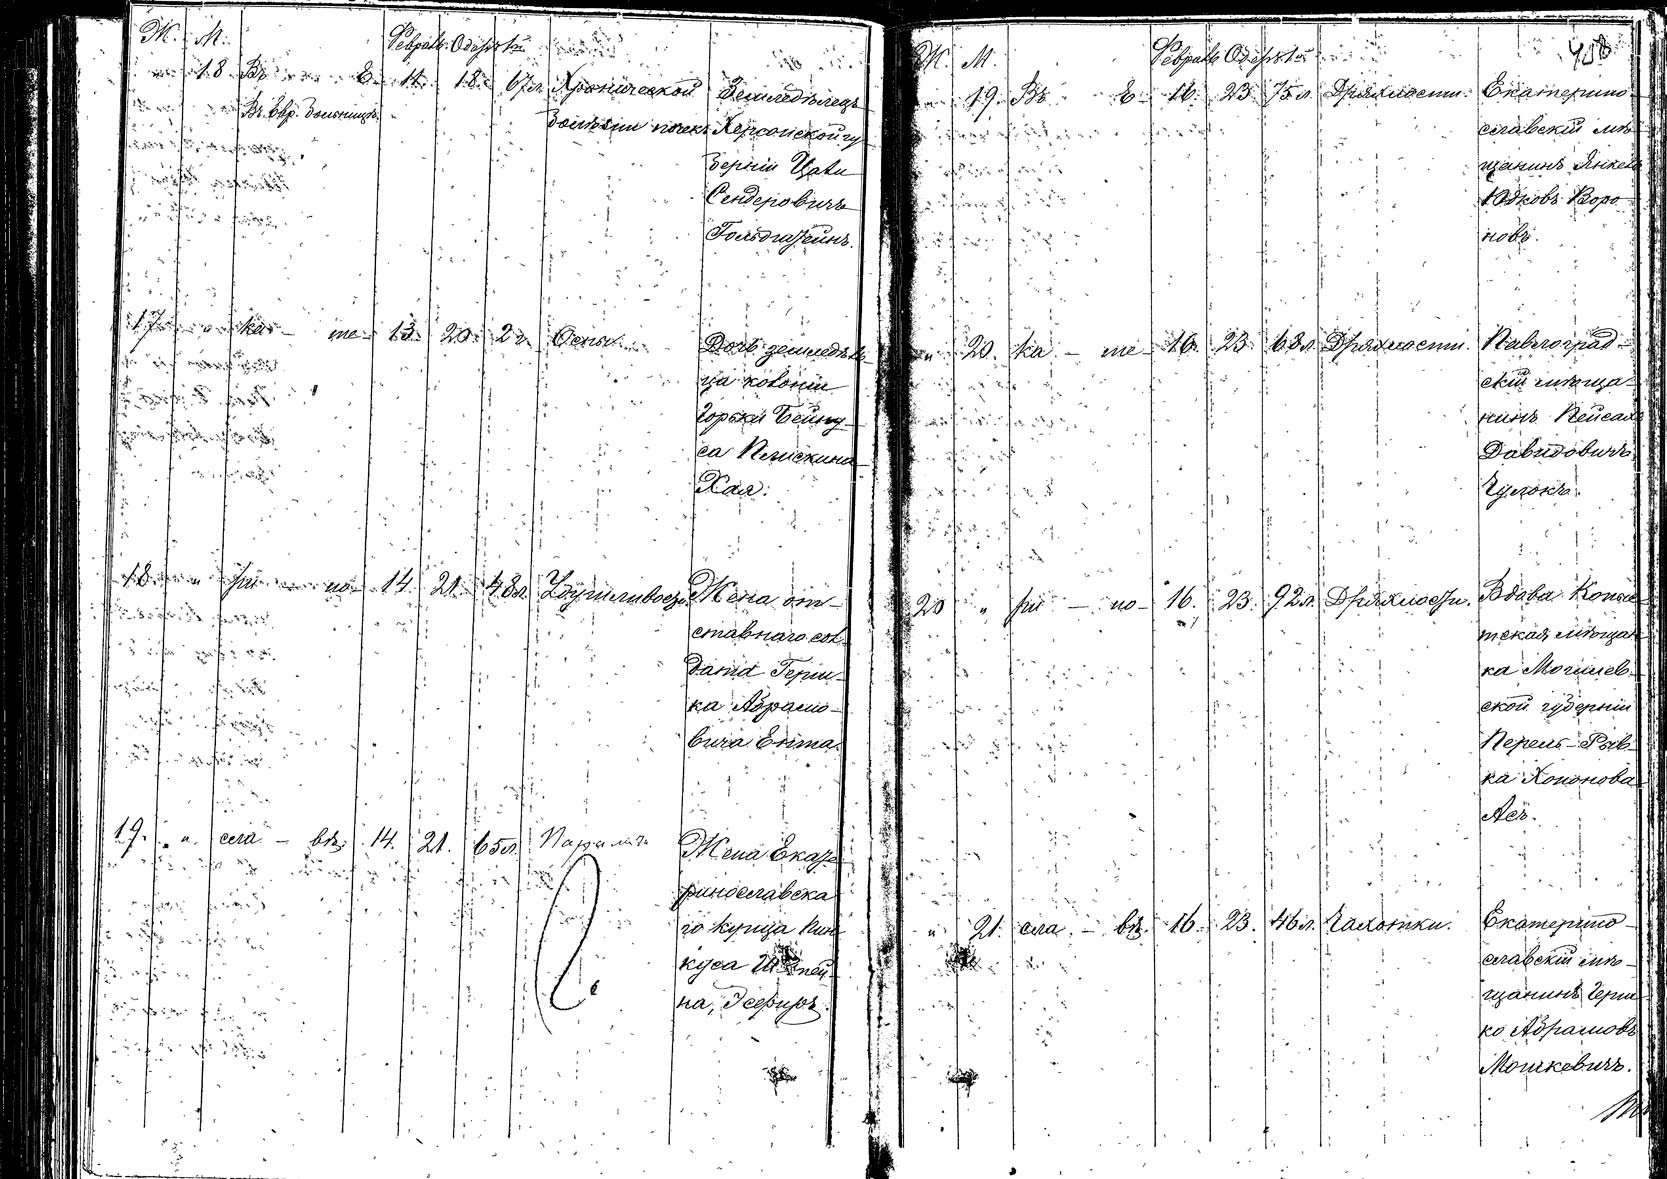 Ж. М. Февраль Одаръ 1й
18 Въ Е. 11. 18. 67л. Хронической Земледѣлецъ
Въ Евр. больницѣ. болѣзни почекъ Херсонской гу
берніи
Сендеровичъ
17 " ка - те - 13. 20. 2 г. Оспы. Дочь земледѣль
ца колоніи
Горьки Бейну
са Плискина
Хая.
18 " ри - но - 14. 21. 48л. Удушливости Жена от-
ставнаго сол
дата Герш-
ка Абрамо-
вича Ента.
19. " сла - вѣ. 14. 21. 65л. Параличъ Жена Екате
ринославска
го купца Пин
куса
на, Эсфирь.
458
Ж. М. Февраль Одаръ 1й
" 19. Въ Е - 16. 23. 75л. Дряхлости. Екатерино-
славскій мѣ-
щанинъ Янкель
Юдковъ Воро-
новъ.
" 20. ка - те - 16. 23. 68л. Дряхлости. Павлоград-
скій мѣща-
нинъ Пейсахъ
Давидовичъ
Чулокъ.
20 " ри - но - 16. 23. 92л. Дряхлости. Вдова Копы-
тская мѣщан
ка Могилев-
ской губерніи
Перель-Рыв
ка Хононова
Асъ.
" 21. сла - вѣ. 16. 23. 46л. Чахотки. Екатерино-
славскій мѣ-
щанинъ Герш-
ко Абрамовъ
Мошкевичъ.